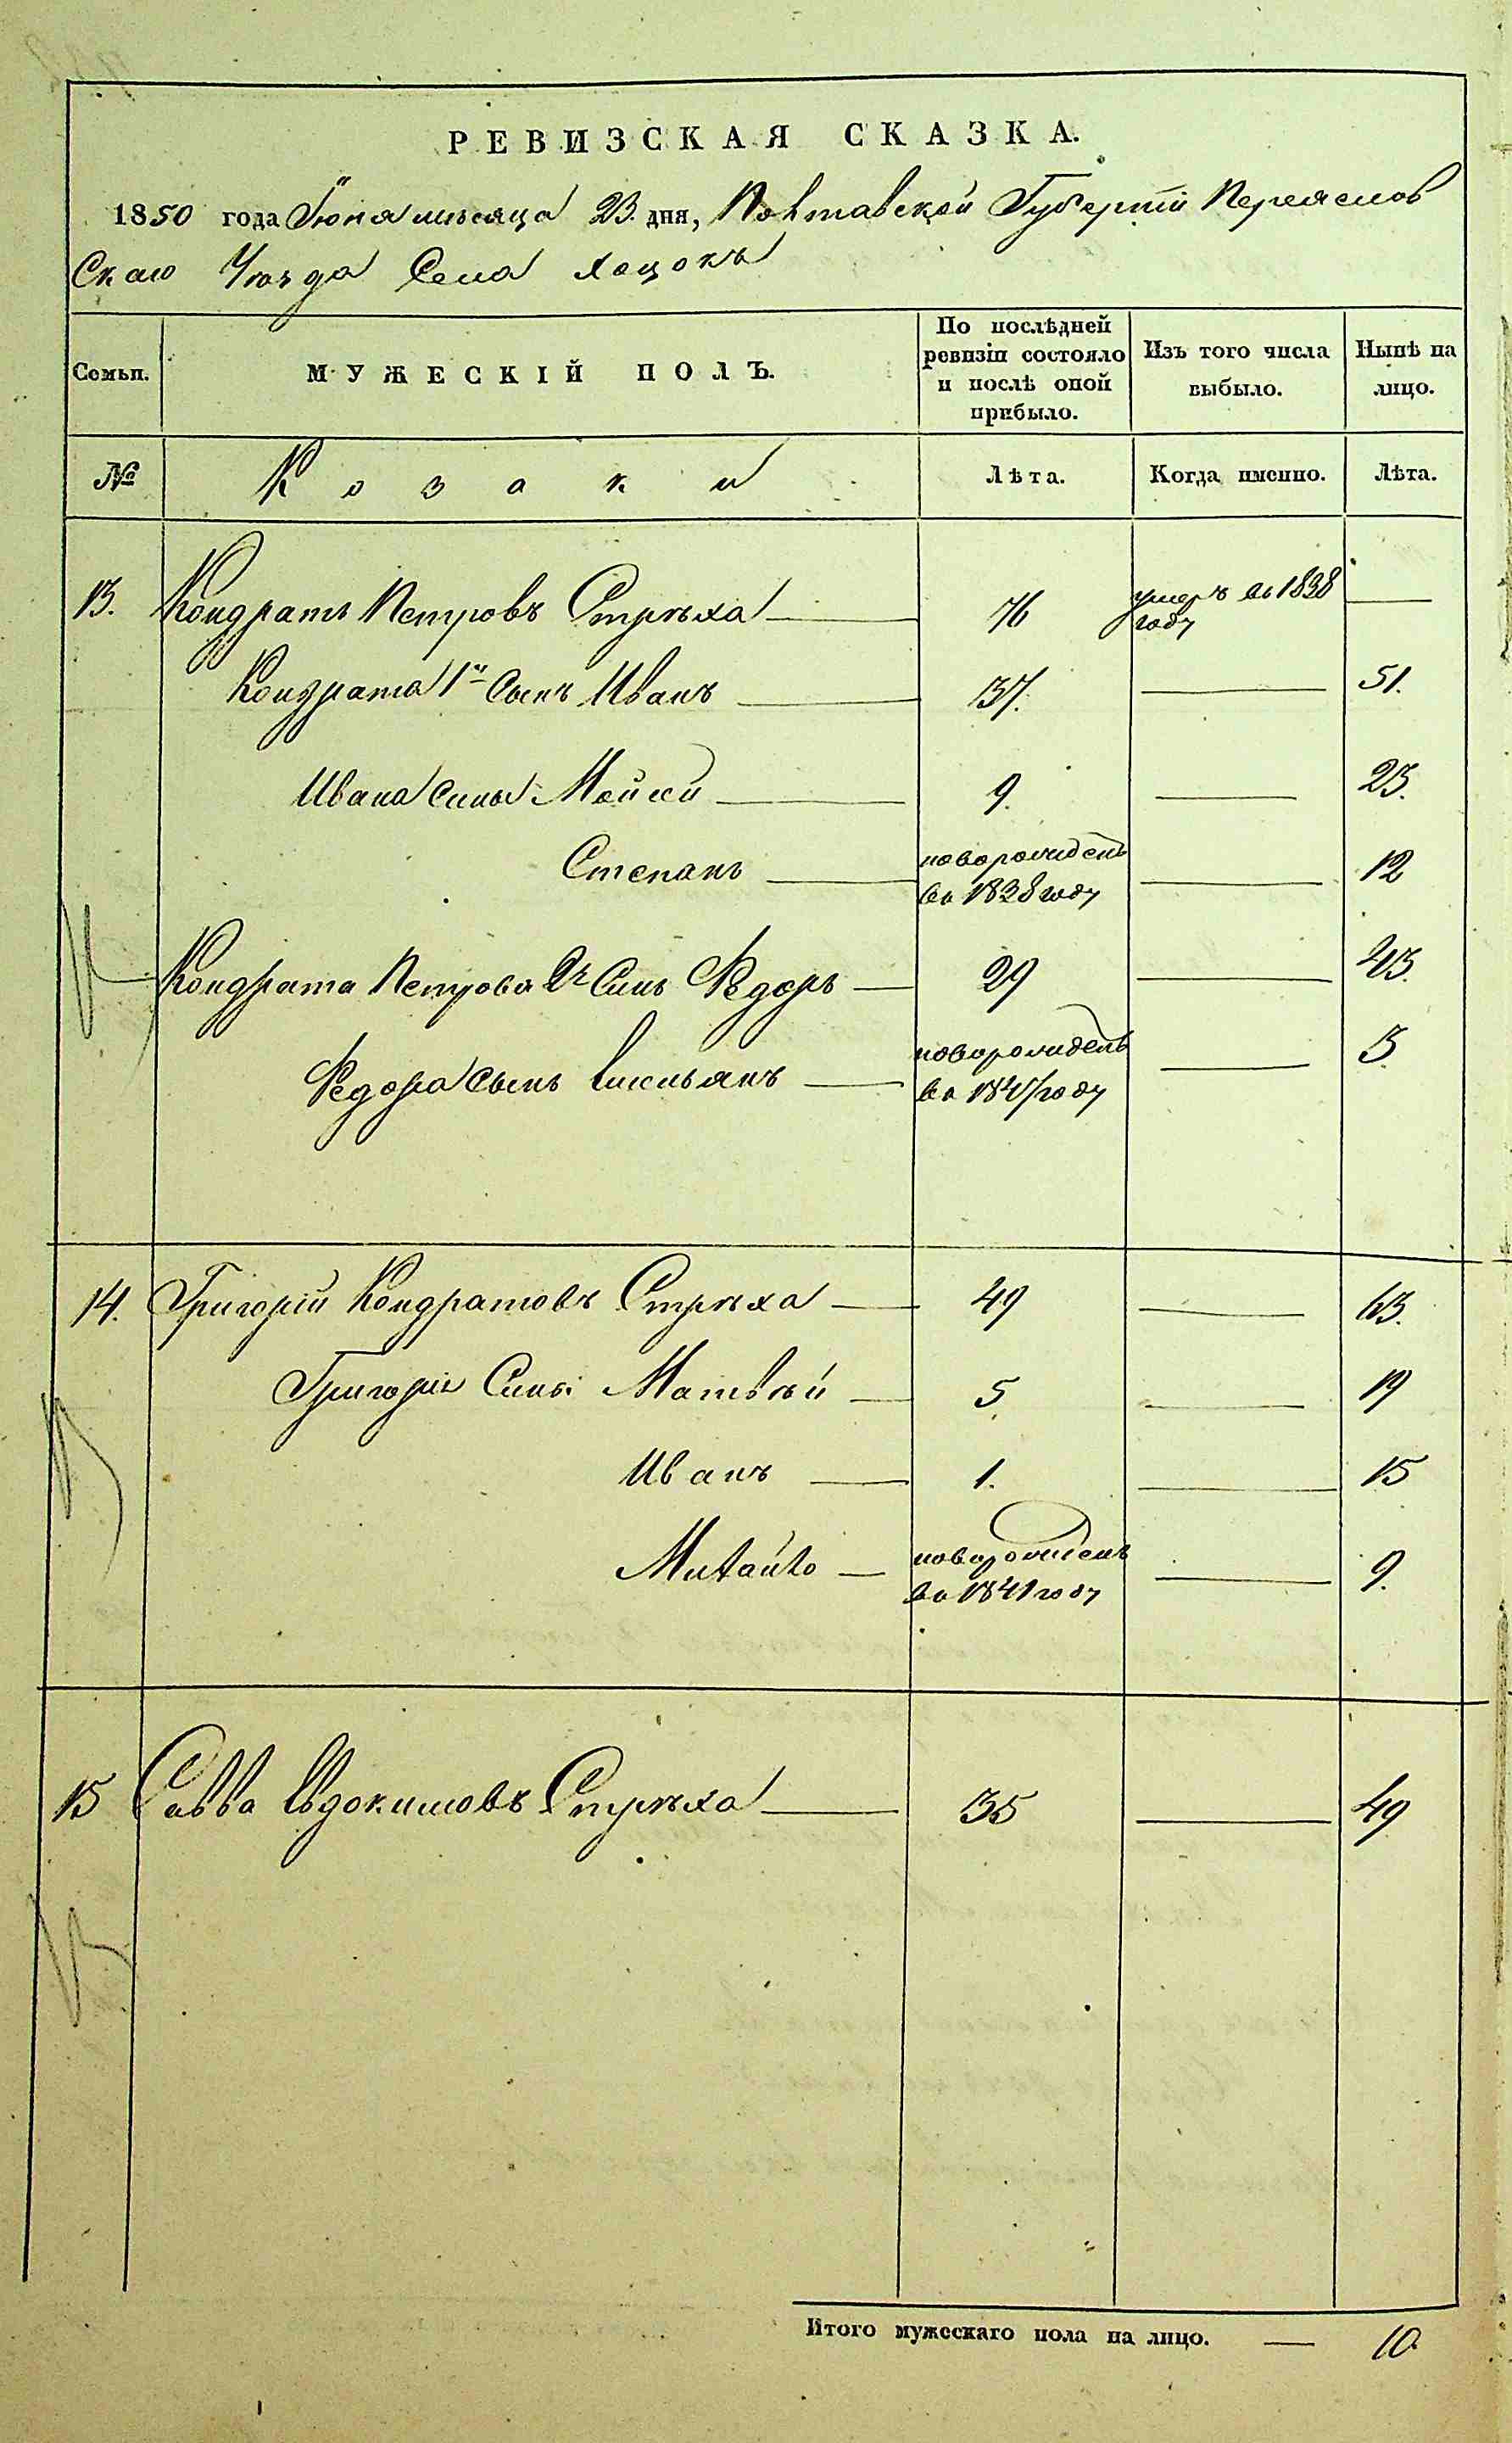 РЕВИЗСКАЯ СКАЗКА.
1850 года Іюня мѣсяца 23. дня, Полтавской Губерніи Переяслов
Скаго Уѣзда Села Хоцокъ
Семьи. МУЖЕСКІЙ ПОЛЪ. По послѣдней ревизіи состояло и послѣ оной прибыло. Изъ того числа выбыло. Нынѣ на лицо.
№ Козаки Лѣта. Когда именно. Лѣта.
13. Кондратъ Петровъ Стрѣха 76 умеръ въ 1838 году
Кондрата 1й Сынъ Иванъ 37. 51.
Ивана Сыны Мойсей 9. 23.
Степанъ новорожденъ въ 1838 году 12
Кондрата Петрова 2й Сынъ Федоръ 29 43.
Федора Сынъ Емельянъ новорожденъ въ 1847 году 3
14. Григорій Кондратовъ Стрѣха 49 63.
Григорія Сыны Матвѣй 5 19
Иванъ 1. 15
Михайло новорожденъ въ 1841 году 9.
15 Савва Евдокимовъ Стрѣха 35 49
Итого мужескаго пола на лицо. 10.